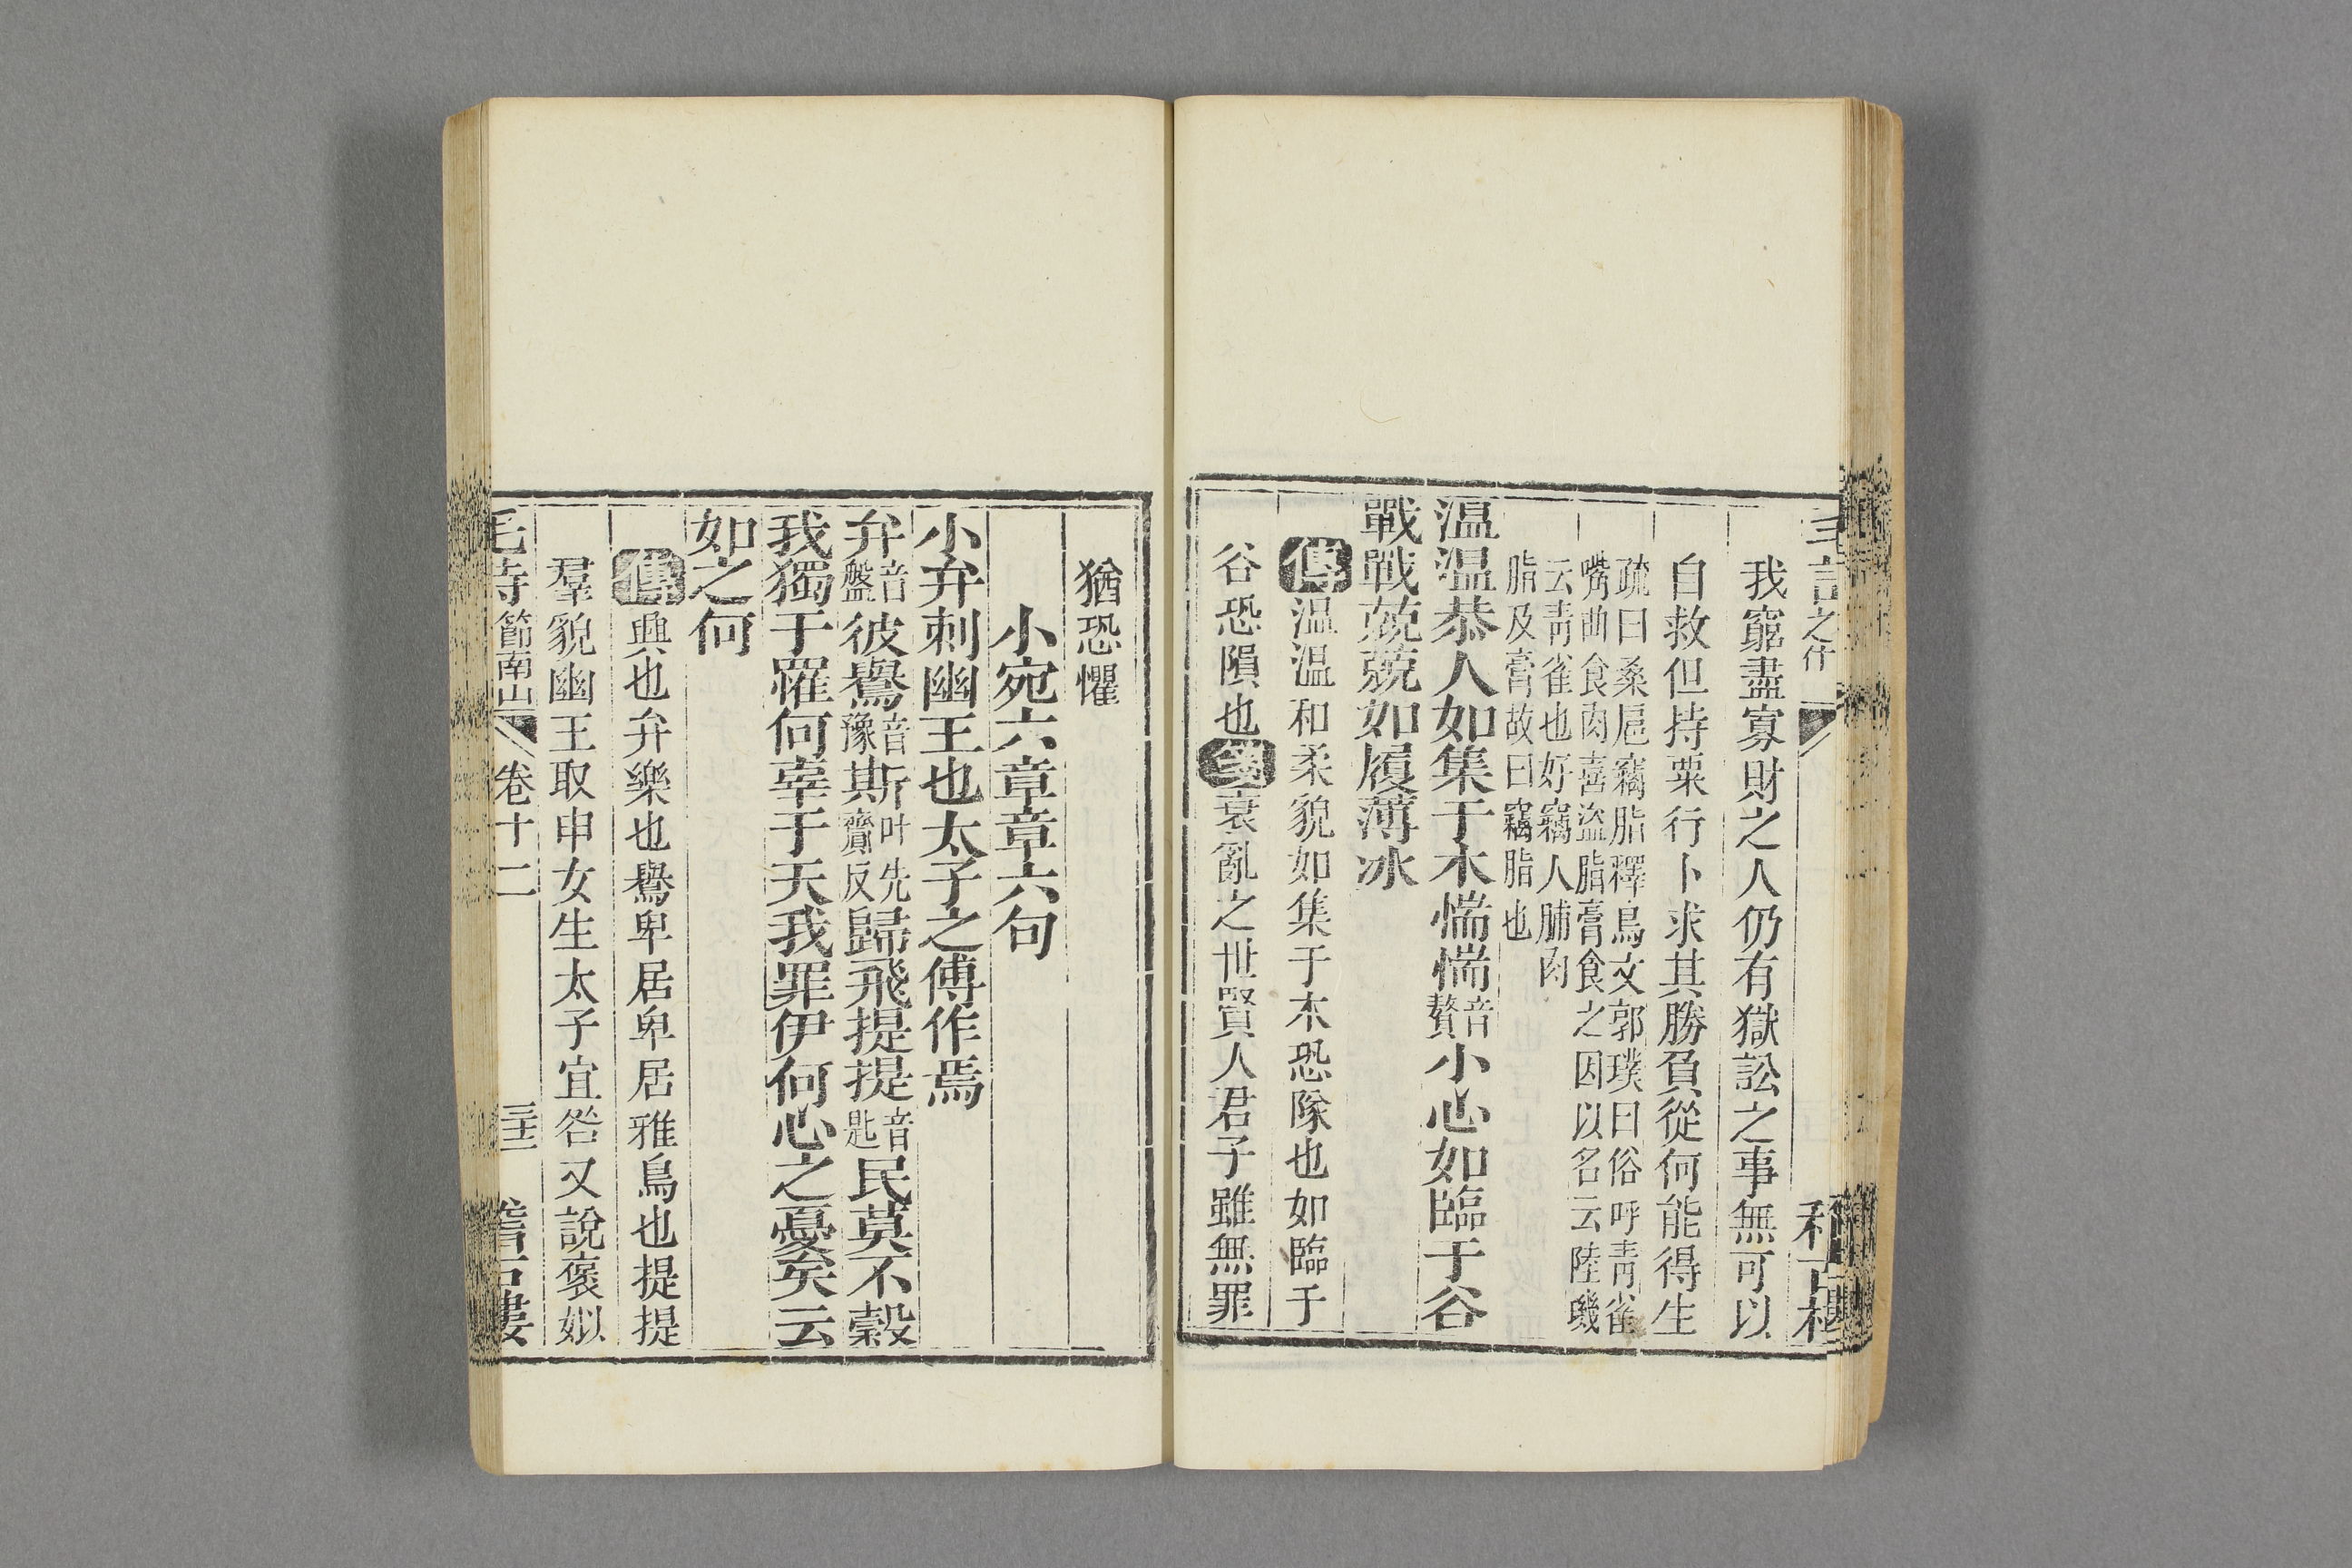 之什
我窮盡寡財之人仍有獄訟之事無可以
自救但持粟行卜求其勝負從何能得生
疏曰桑扈竊脂釋鳥文郭璞曰俗呼青雀
嘴曲食肉喜盜脂膏食之因以名云陸璣
云青雀也好竊人脯肉
脂及膏故曰竊脂也
溫溫恭人如集于木惴惴音贅小心如臨于谷
戰戰兢兢如履薄冰
傳溫溫和柔貌如集于木恐隊也如臨于
谷恐隕也箋衰亂之世賢人君子雖無罪
猶恐懼
小宛六章章六句
小弁刺幽王也太子之傅作焉
弁音盤彼鸒音豫斯叶先齎反歸飛提提音匙民莫不穀
我獨于罹何辜于天我罪伊何心之憂矣云
如之何
傳興也弁樂也鸒卑居卑居雅烏也提提
羣貌幽王取申女生太子宜咎又說褒姒
毛詩節南山 卷十二